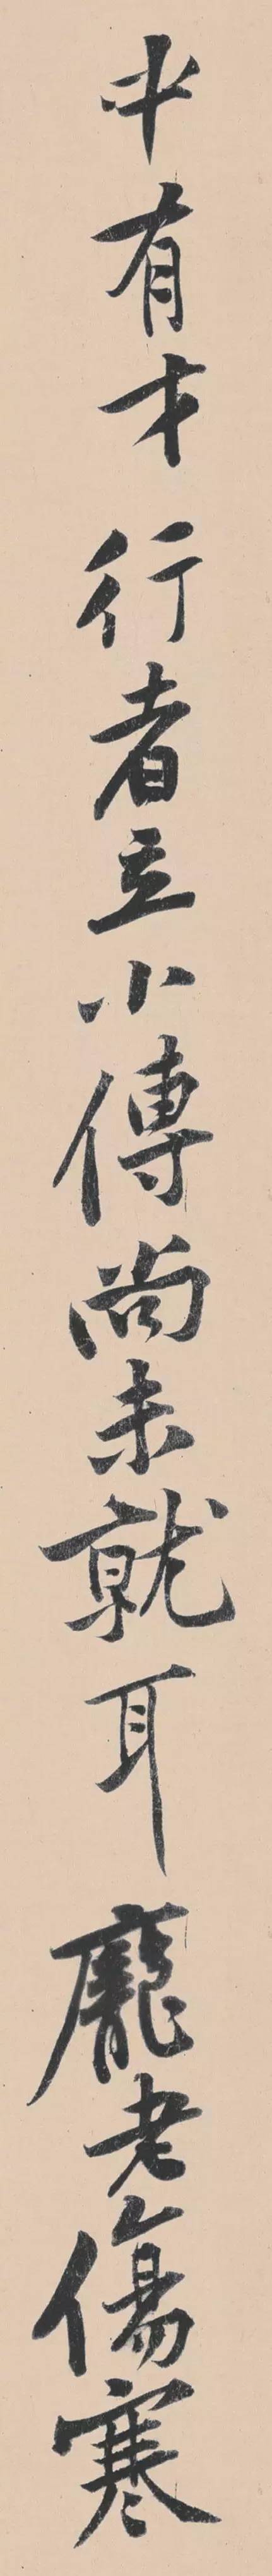 中有才行者立小傳尚未就耳龐老傷寒